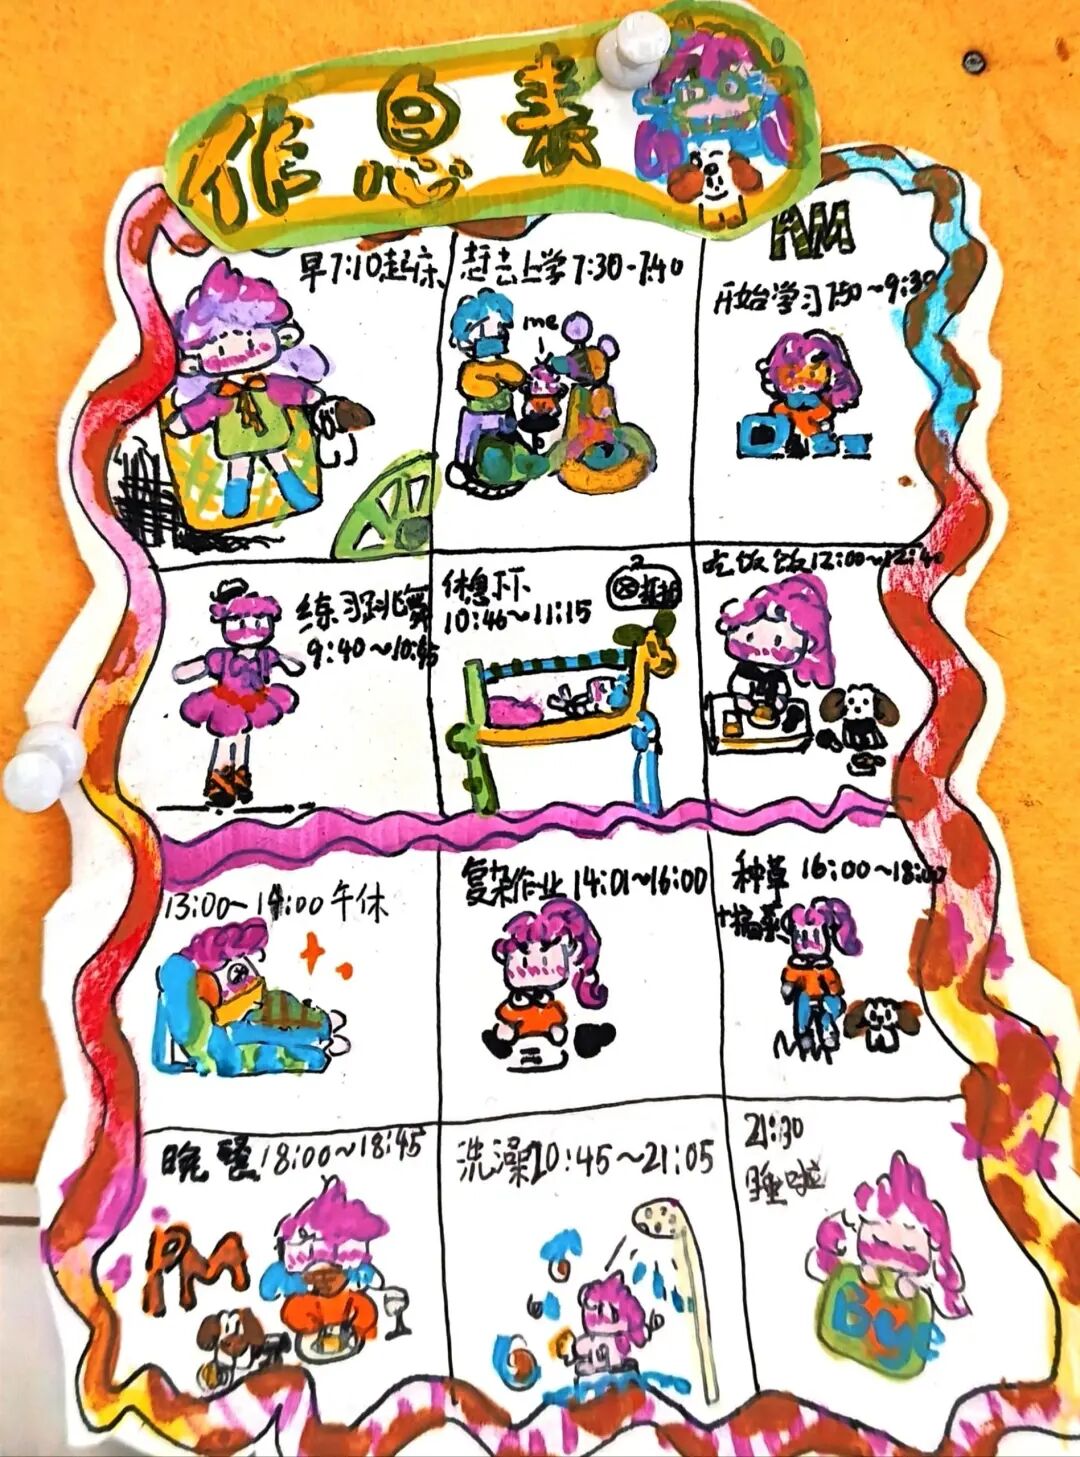 作息表
AM
早7:10起床
赶去上学7:30-7:40
me
开始学习7:50~9:30
练习跳舞
9:40~10:45
休息下下
10:46~11:15
吃饭饭12:00~12:40
13:00~14:00午休
复杂作业14:01~16:00
种草 16:00~18:00
晚餐18:00~18:45
PM
洗澡20:45~21:05
21:30
睡啦
Bye